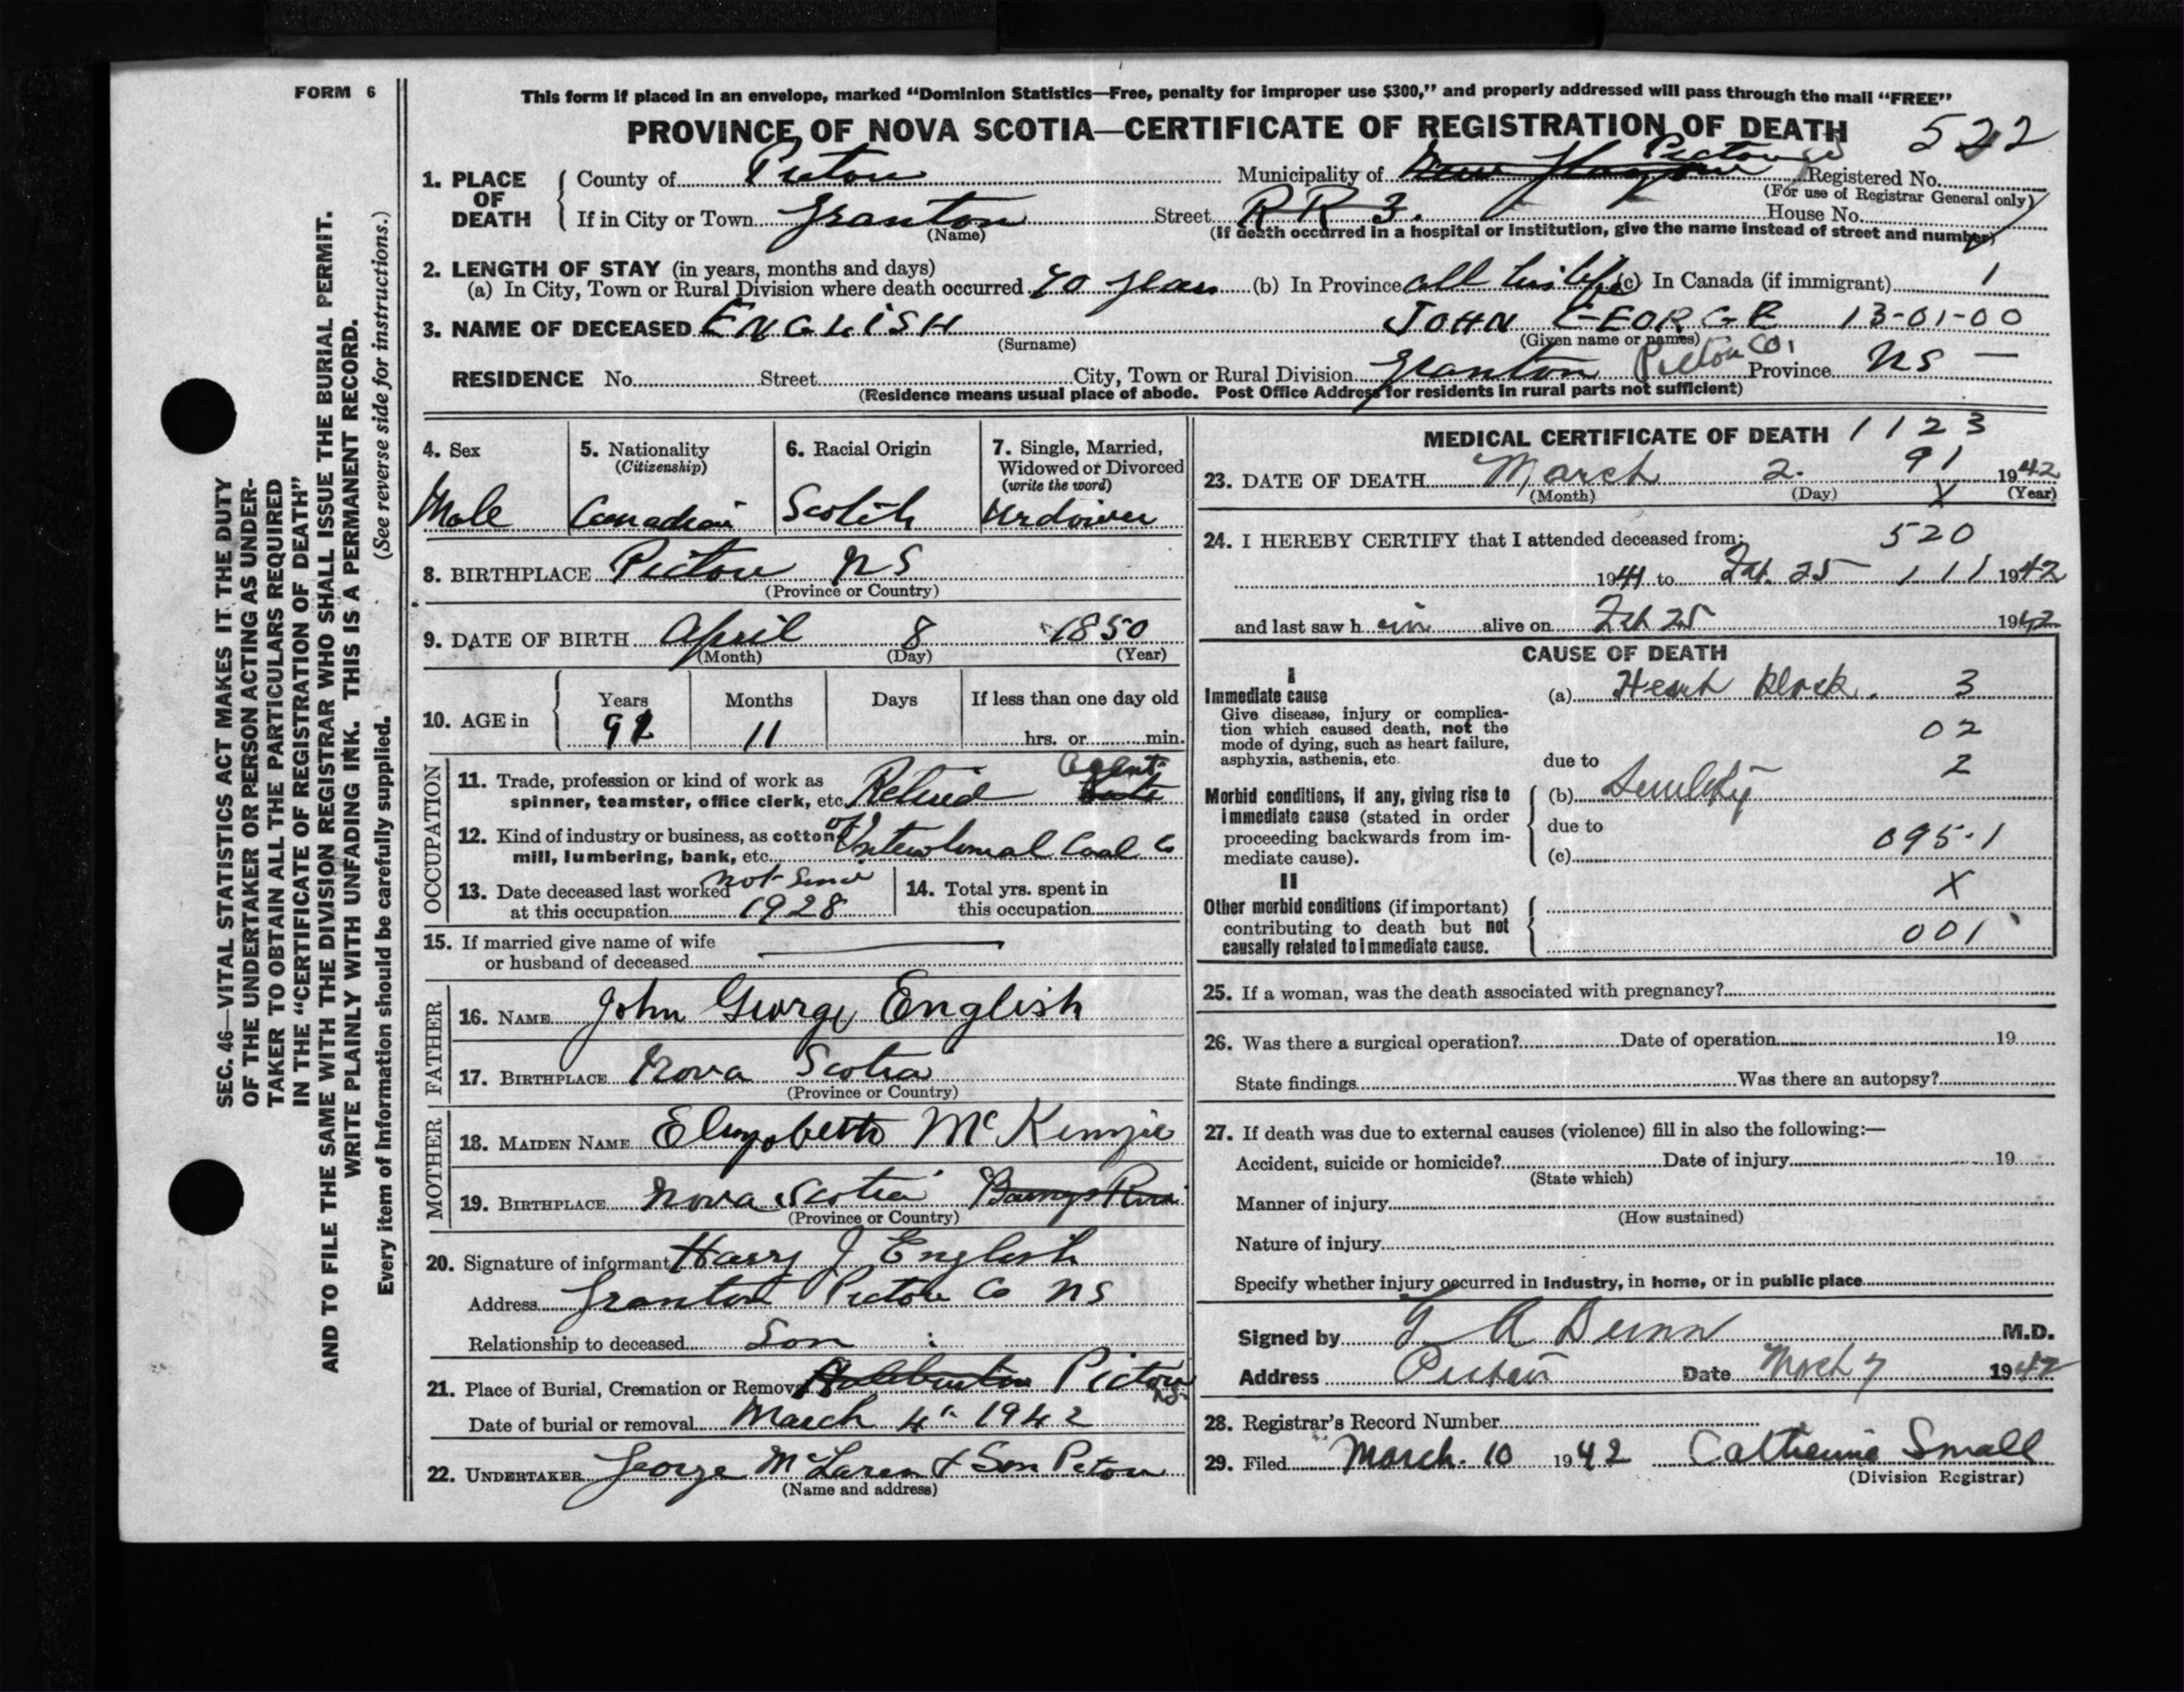 FORM 6
This form if placed in an envelope, marked "Dominion Statistics—Free, penalty for improper use $300," and properly addressed will pass through the mail "FREE"
PROVINCE OF NOVA SCOTIA—CERTIFICATE OF REGISTRATION OF DEATH 522
1. PLACE OF DEATH
County of Pictou Municipality of Pictou Registered No.
(For use of Registrar General only)
If in City or Town Granton Street RR 3. House No.
(Name) (If death occurred in a hospital or institution, give the name instead of street and number)
2. LENGTH OF STAY (in years, months and days)
(a) In City, Town or Rural Division where death occurred 40 years (b) In Province all his life (c) In Canada (if immigrant) 1
3. NAME OF DECEASED ENGLISH JOHN GEORGE 13-01-00
(Surname) (Given name or names)
RESIDENCE No. Street City, Town or Rural Division Granton Pictou Co. Province NS —
(Residence means usual place of abode. Post Office Address for residents in rural parts not sufficient)
4. Sex
Male
5. Nationality
(Citizenship)
Canadian
6. Racial Origin
Scotch
7. Single, Married,
Widowed or Divorced
(write the word)
Widower
8. BIRTHPLACE Pictou NS
(Province or Country)
9. DATE OF BIRTH April 8 1850
(Month) (Day) (Year)
10. AGE in
Years Months Days If less than one day old
91 11 hrs. or min.
OCCUPATION
11. Trade, profession or kind of work as
spinner, teamster, office clerk, etc. Retired Agent
12. Kind of industry or business, as cotton
mill, lumbering, bank, etc. of Intercolonial Coal Co
13. Date deceased last worked
at this occupation not since 1928
14. Total yrs. spent in
this occupation
15. If married give name of wife
or husband of deceased —
FATHER
16. NAME John George English
17. BIRTHPLACE Nova Scotia
(Province or Country)
MOTHER
18. MAIDEN NAME Elizabeth McKenzie
19. BIRTHPLACE Nova Scotia Barneys River
(Province or Country)
20. Signature of informant Harry J English
Address Granton Pictou Co NS
Relationship to deceased Son
21. Place of Burial, Cremation or Removal Haliburton Pictou NS
Date of burial or removal March 4 1942
22. UNDERTAKER George McLaren & Son Pictou
(Name and address)
MEDICAL CERTIFICATE OF DEATH 1123
91
23. DATE OF DEATH March 2. 1942
(Month) (Day) X (Year)
24. I HEREBY CERTIFY that I attended deceased from: 520
1941 to Feb. 25 111 1942
and last saw him alive on Feb 25 1942
CAUSE OF DEATH
I
Immediate cause
Give disease, injury or complication which caused death, not the
mode of dying, such as heart failure,
asphyxia, asthenia, etc.
(a) Heart block. 3
02
due to 2
Morbid conditions, if any, giving rise to
immediate cause (stated in order
proceeding backwards from immediate cause).
(b) Senility
due to
(c) 095.1
II
Other morbid conditions (if important)
contributing to death but not
causally related to immediate cause.
X
001
25. If a woman, was the death associated with pregnancy?
26. Was there a surgical operation? Date of operation 19
State findings Was there an autopsy?
27. If death was due to external causes (violence) fill in also the following:—
Accident, suicide or homicide? Date of injury 19
(State which)
Manner of injury
(How sustained)
Nature of injury
Specify whether injury occurred in industry, in home, or in public place
Signed by G A Dunn M.D.
Address Pictou Date March 7 1942
28. Registrar's Record Number
29. Filed March. 10 1942 Catherine Small
(Division Registrar)
SEC. 46—VITAL STATISTICS ACT MAKES IT THE DUTY
OF THE UNDERTAKER OR PERSON ACTING AS UNDER-
TAKER TO OBTAIN ALL THE PARTICULARS REQUIRED
IN THE "CERTIFICATE OF REGISTRATION OF DEATH"
AND TO FILE THE SAME WITH THE DIVISION REGISTRAR WHO SHALL ISSUE THE BURIAL PERMIT.
WRITE PLAINLY WITH UNFADING INK. THIS IS A PERMANENT RECORD.
Every item of information should be carefully supplied. (See reverse side for instructions.)